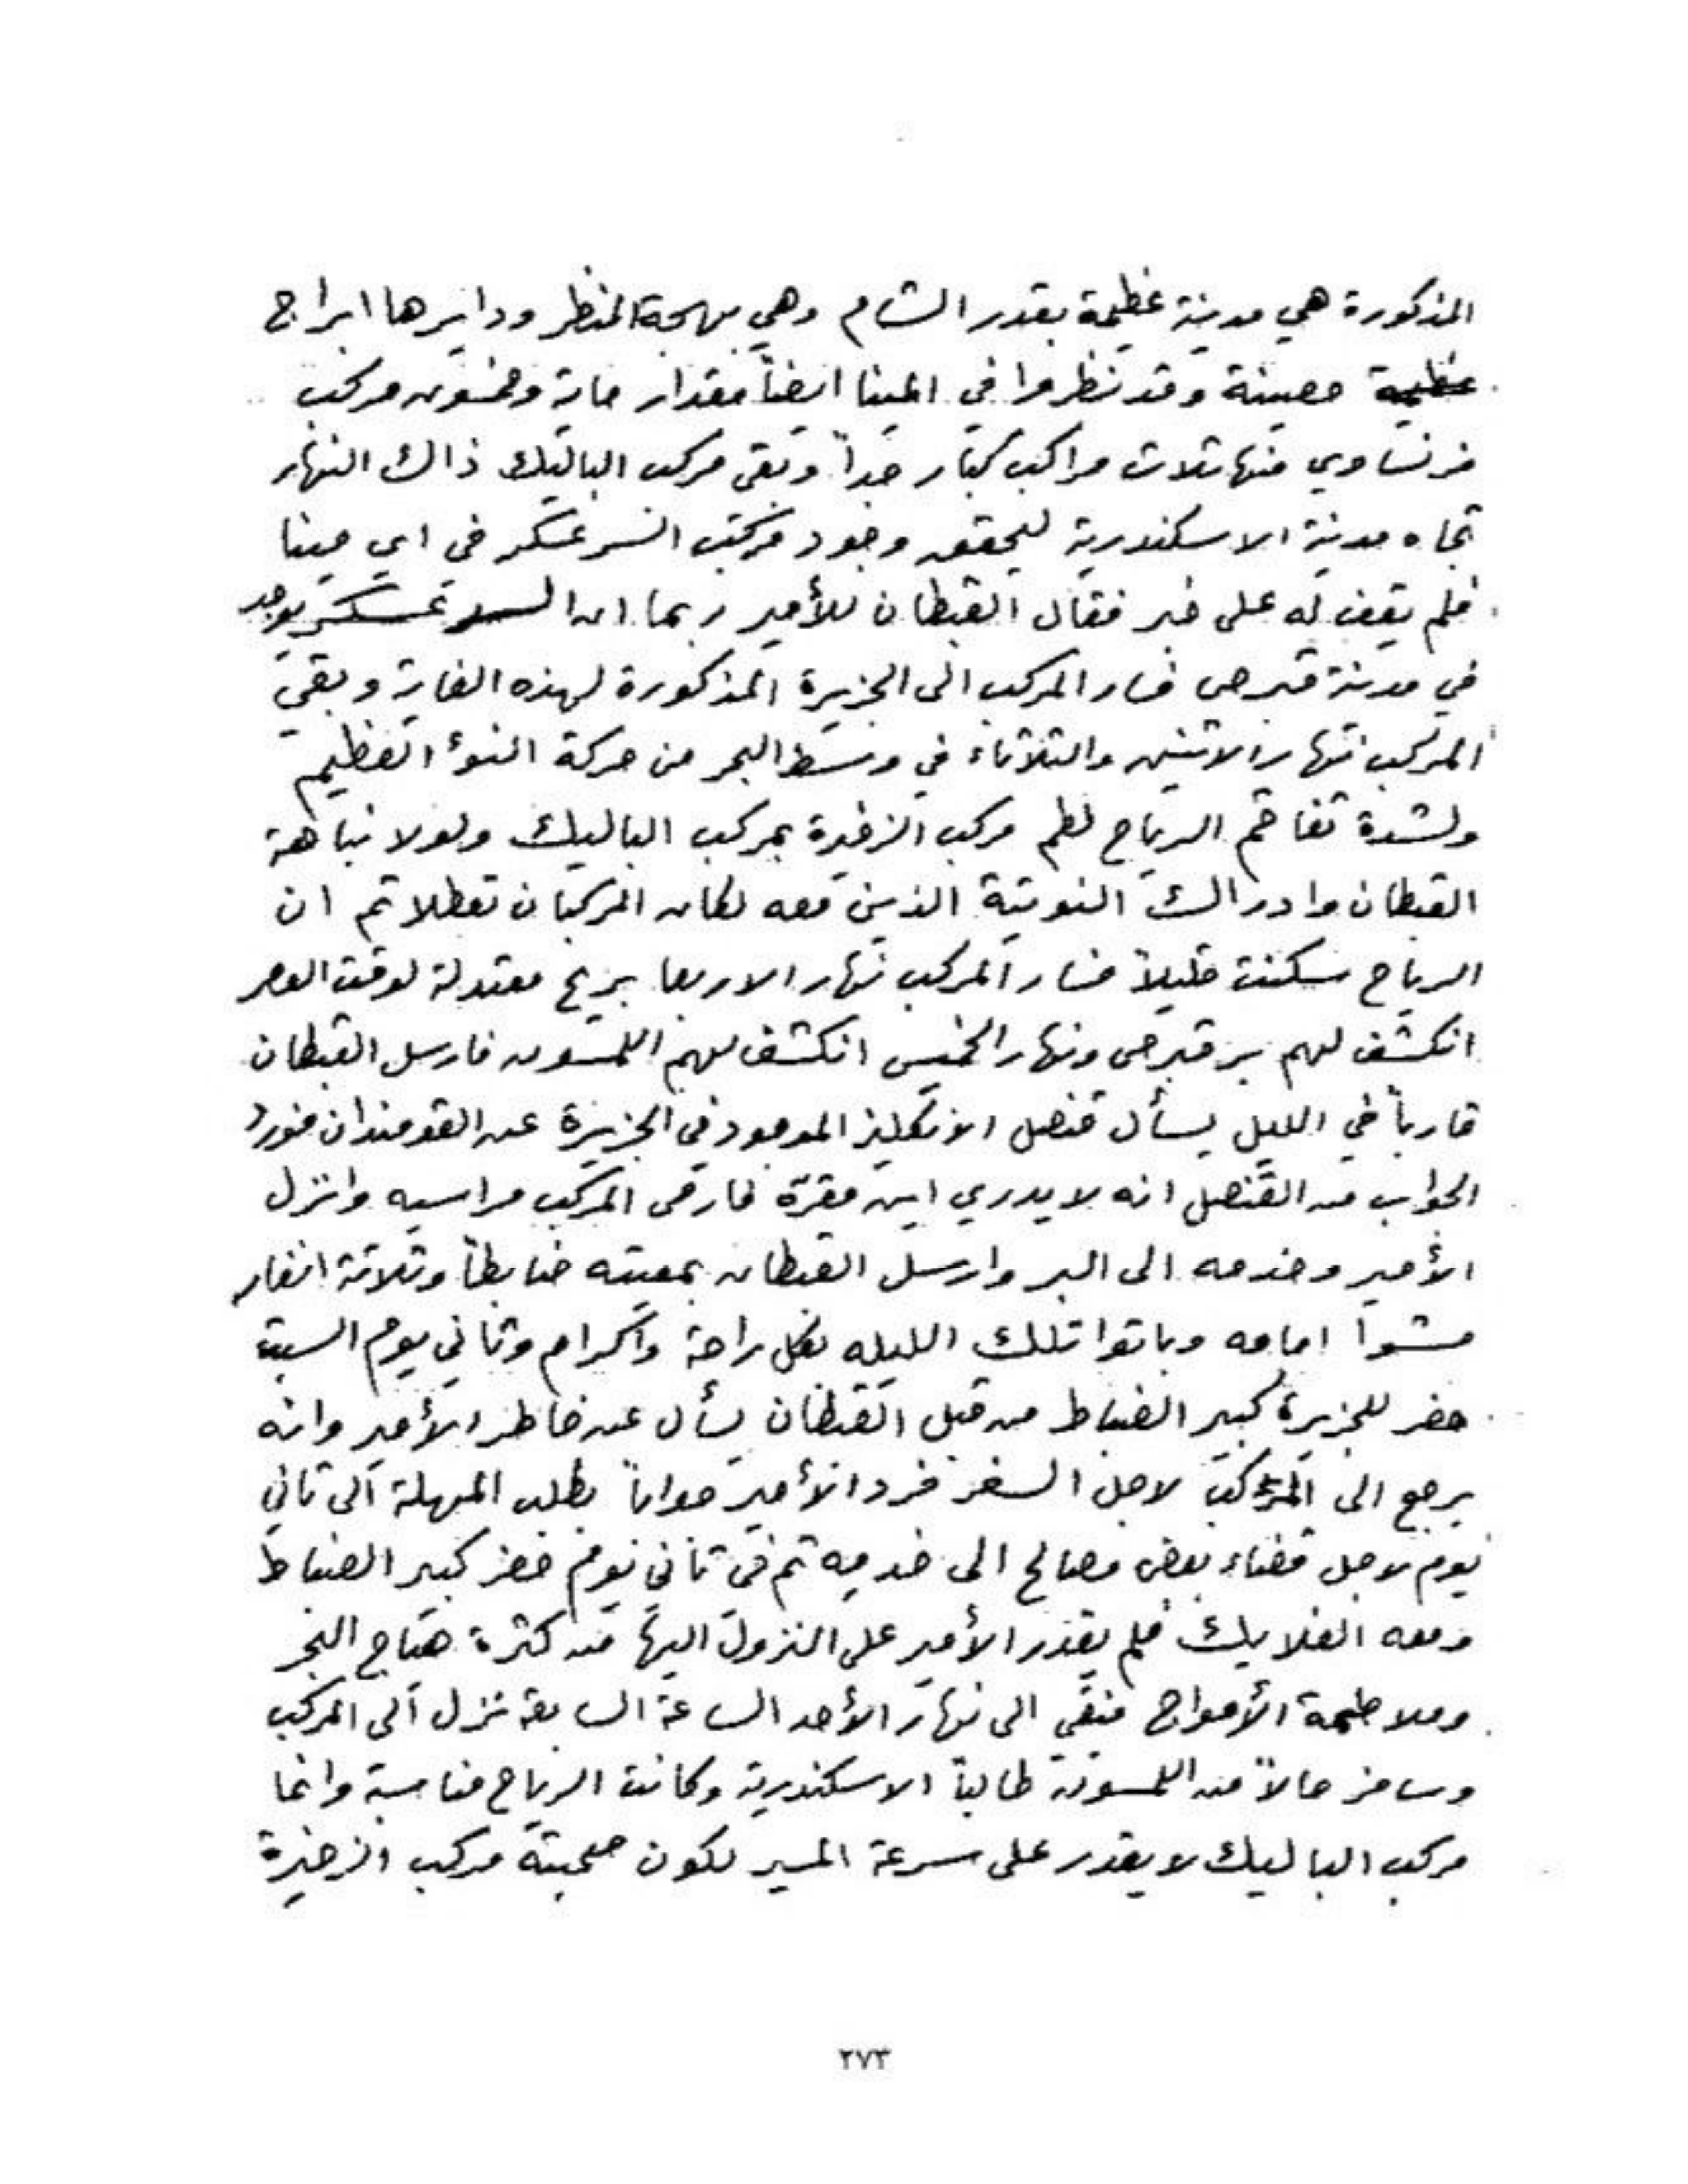 المذكورة هي مدينة عظيمة بقدر الشام وهي بهجة المنظر ودايرها ابراج
عظيمة حصينة وقد نظروا في المينا ايضاً مقدار ماية وخمسون مركب
فرنساوي منها ثلاث مراكب كبار جداً وبقي مركب الباليك ذالك النهار
تجاه مدينة الاسكندرية ليحقق وجود مركب السرعسكر في اي مينا
فلم يقف له على خبر فقال القبطان للأمير ربما ان السر عسكر يوجد
في مدينة قبرص فسار المركب الى الجزيرة المذكورة لهذه الغاية وبقي
المركب نهار الاتنين والتلاتاء في وسط البحر من حركة النوء العظيم
ولشدة تفاقم الرياح لطم مركب الزخيرة بمركب الباليك ولولا نباهة
القبطان وادراك النوتية الذين معه لكان المركبان تعطلا تم ان
الرياح سكنت قليلاً فسار المركب نهار الاربعا بريح معتدلة لوقت العصر
انكشف لهم بر قبرص ونهار الخميس انكشف لهم اللمسون فارسل القبطان
قارباً في الليل يسأل قنصل الانكليز الموجود في الجزيرة عن القومندان فورد
الجواب من القنصل انه لا يدري اين مقرّه فارمى المركب مراسيه وانزل
الأمير وخدمه الى البر وارسل القبطان بمعيته ضابطاً وتلاتة انفار
مشوا امامه وباتوا تلك الليله بكل راحة واكرام وتاني يوم السبت
حضر للجزيرة كبير الضباط من قبل القبطان يسأل عن خاطر الأمير وانه
يرجع الى المركب لاجل السفر فرد الأمير جواباً بطلب المهلة الى تاني
يوم لاجل قضاء بعض مصالح الى خدمه تم في تاني يوم حضر كبير الضباط
ومعه الفلايك فلم يقدر الأمير على النزول اليها من كثرة هياج البحر
وملاطمة الأمواج فبقي الى نهار الأحد الساعة السابعة نزل الى المركب
وسافر حالاً من اللمسون طالباً الاسكندرية وكانت الرياح مناسبة وانما
مركب الباليك لا يقدر على سرعة المسير لكون صحبته مركب الزخيرة
٢٧٣